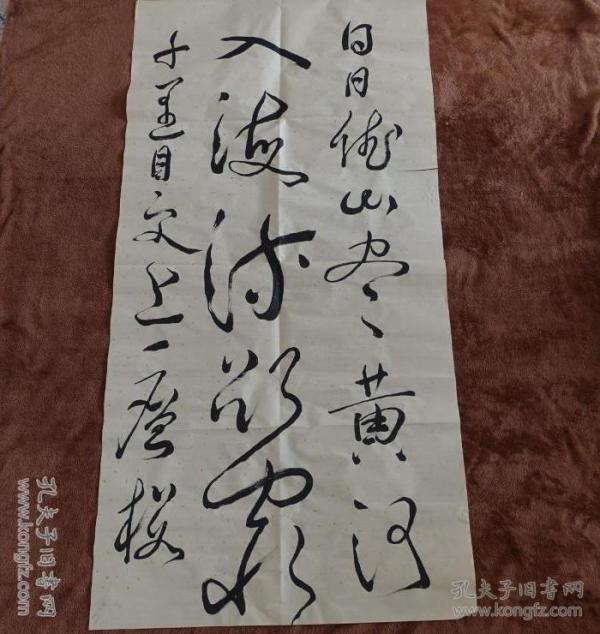 白日依山尽黄河
入海流欲穷
千里目更上一层楼
孔夫子旧书网
www.kongfz.com
孔夫子旧书网
www.kongfz.com